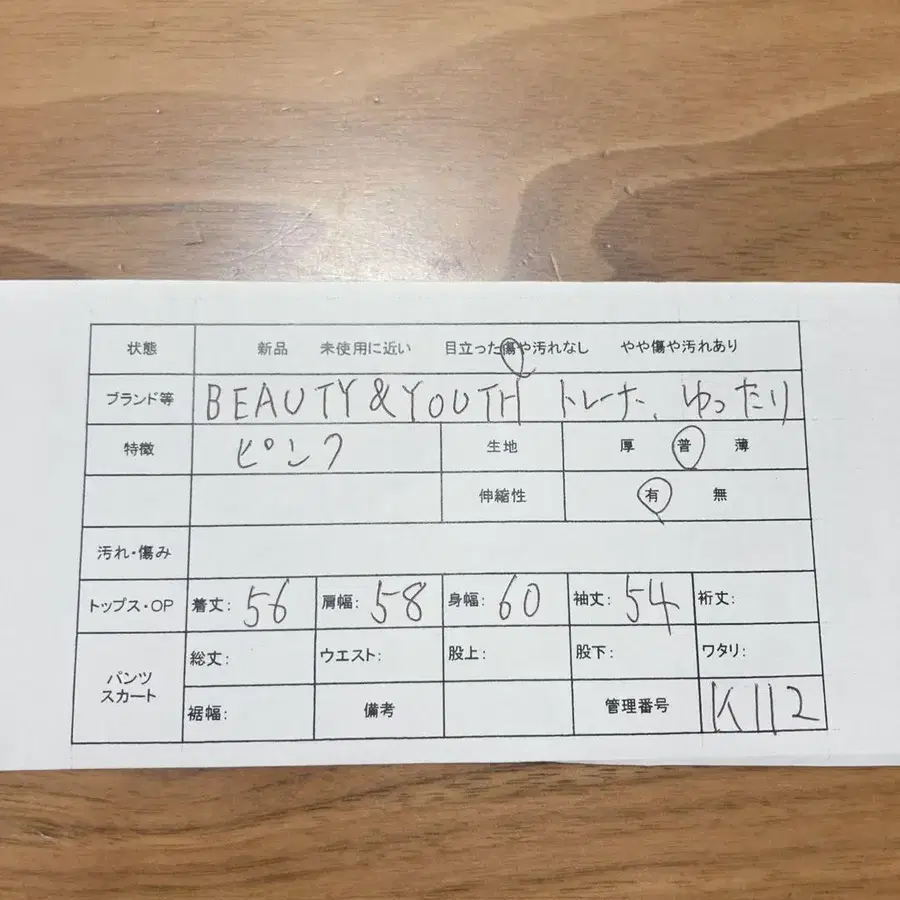 状態 新品 未使用に近い 目立った傷や汚れなし やや傷や汚れあり
ブランド等 BEAUTY&YOUTH トレーナー、ゆったり
特徴 ピンク 生地 厚 普 薄
伸縮性 有 無
汚れ・傷み
トップス・OP 着丈: 56 肩幅: 58 身幅: 60 袖丈: 54 裄丈:
パンツ スカート 総丈: ウエスト: 股上: 股下: ワタリ:
裾幅: 備考 管理番号 K112